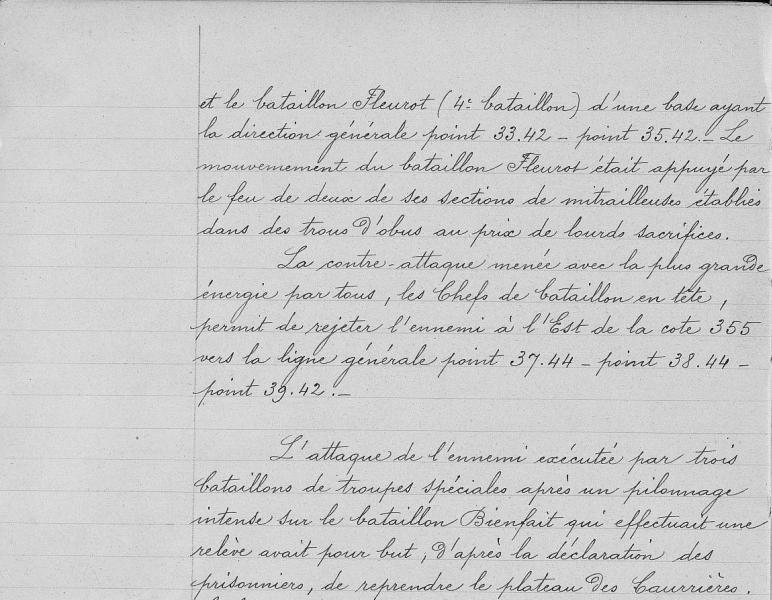 et le bataillon Fleurot (4e bataillon) d'une base ayant
la direction générale point 33.42 – point 35.42. – Le
mouvemement du bataillon Fleurot était appuyé par
le feu de deux de ses sections de mitrailleuses établies
dans des trous d'obus au prix de lourds sacrifices.
La contre-attaque menée avec la plus grande
énergie par tous, les Chefs de bataillon en tête,
permit de rejeter l'ennemi à l'Est de la cote 355
vers la ligne générale point 37.44 – point 38.44 –
point 39.42. –
L'attaque de l'ennemi exécutée par trois
bataillons de troupes spéciales après un pilonnage
intense sur le bataillon Bienfait qui effectuait une
relève avait pour but, d'après la déclaration des
prisonniers, de reprendre le plateau des Caurrières.